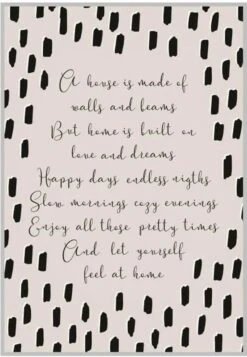 A house is made of
walls and beams
But home is built on
love and dreams
Happy days endless nigths
Slow mornings cozy evenings
Enjoy all those pretty times
And let yourself
feel at home